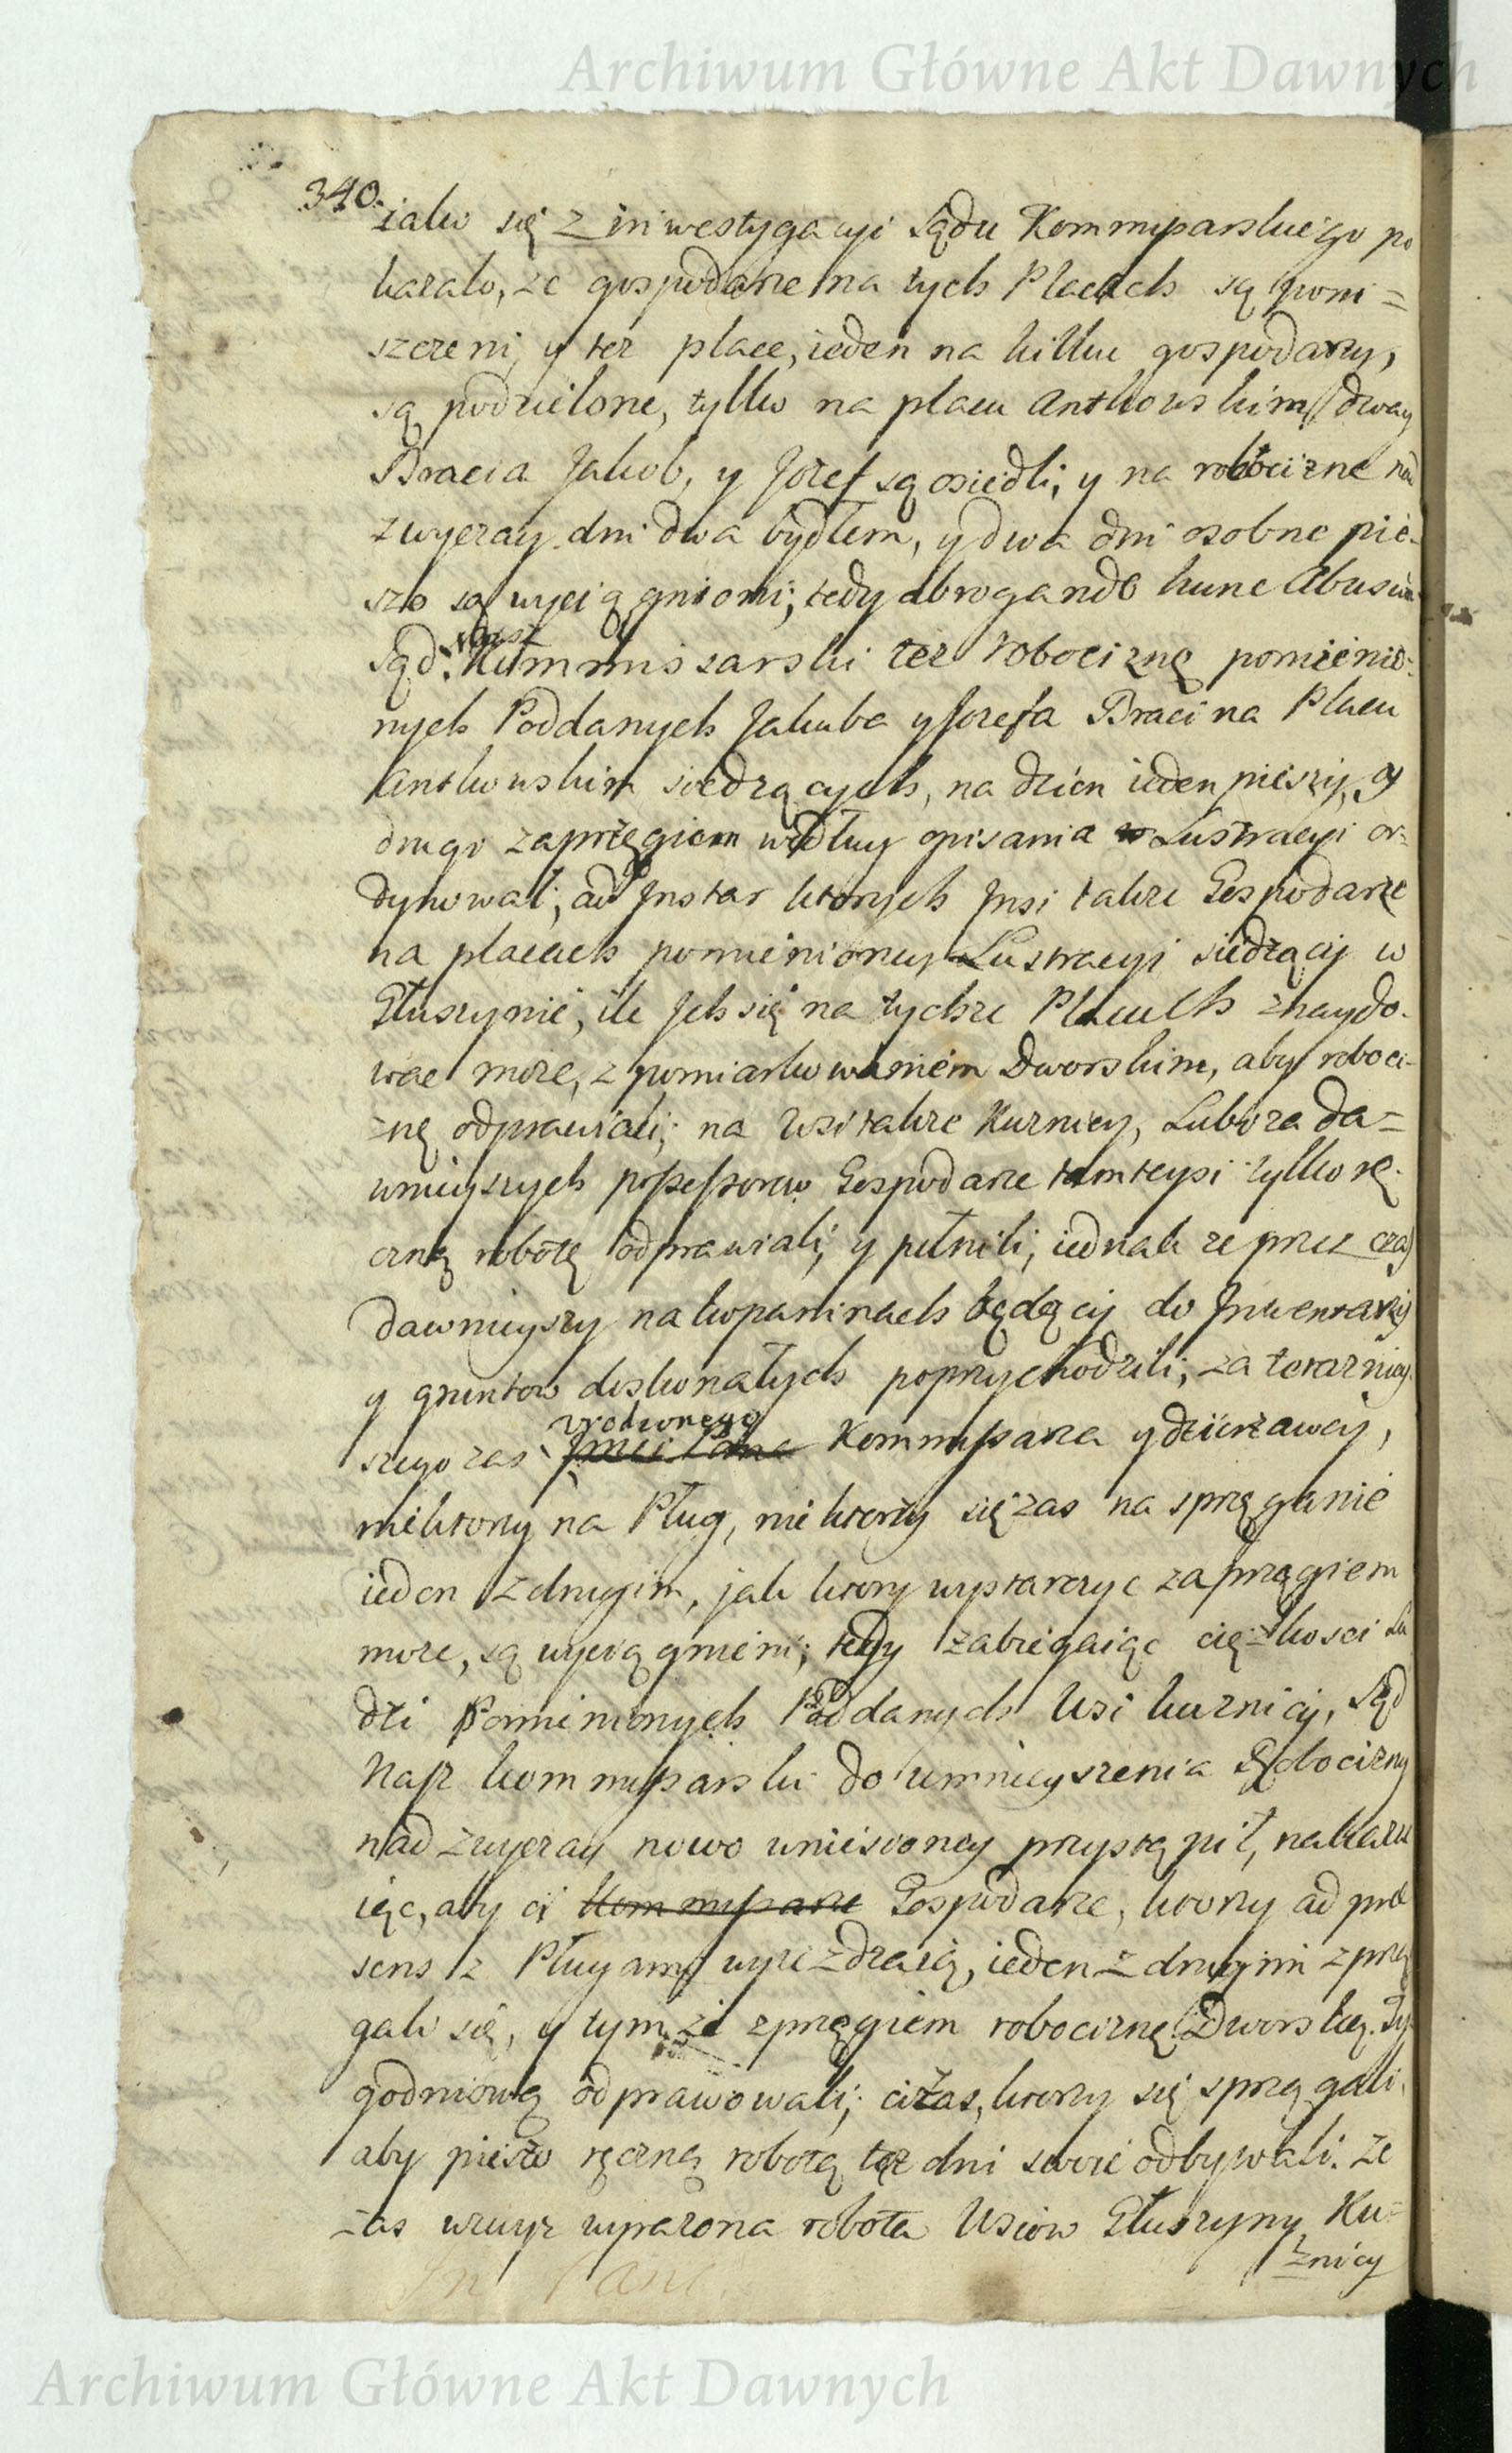 Archiwum Główne Akt Dawnych
340.
iako się z inwestygacyi Sądu Kommissarskiego po
kazało, że gospodarze na tych Placach są poni=
szczeni, y też place, ieden na kilku gospodarzy,
są podzielone, tylko na placu Antkowskim dway
Bracia Jakob, y Jozef są osiedli, y na robociznę nad
zwyczay dni dwa bydłem, y dwa dni osobno pie-
szo są wyciągnioni; tedy abrogando hunc Abusum
Sąd nasz Kommissarski też robociznę pomienio-
nych Poddanych Jakuba y Jozefa Braci na Placu
Antkowskim siedzących, na dzien ieden pieszy, y
drugi zaprzęgiem według opisania Lustracyi or-
dynował, ad Instar ktorych Insi także Gospodarze
na placach pomienioney Lustracyi siedzący w
Głuszynie, ile Ich się na tychże Placach znaydo-
wać może, z pomiarkowaniem Dworskim, aby roboci-
znę odprawiali; na Wsi także Kuznicy, Lubo za da=
wnieyszych possessorow Gospodarze tamteysi tylko rę-
czną robotę odprawiali, y pełnili, iednak że przez czas
dawnieyszy na kopaninach będący do Inwentarzy
y gruntow doskonałych poprzychodzili, za terazniey-
szego zas urodzonego Kommissarza y dzierżawcy,
niektorzy na Pług, niektorzy się zas na sprzęganie
ieden z drugim, jak ktory wystarczyć zaprzągiem
może, są wyciągnieni; tedy zabiegaiąc cięszkosci Lu
dzi Pomienionych Poddanych Wsi kuznicy, Sąd
Nasz kommissarski do umnieyszenia Robocizny
nad zwyczay nowo wniesioney przystąpił, nakazu
iąc, aby ci Kommissarze Gospodarze, ktorzy ad prae
sens z Pługamy wyieżdzaią, ieden z drugim zprzę
gali się, y tym że zprzęgiem robociznę Dworską Ty
godniową odprawowali; ci zas, ktorzy się sprzęgali,
aby pieszo ręczną robotą też dni swoie odbywali. Że
zas wzwyż wyrażona robota Wsiow Głuszyny, Ku=
znicy
Archiwum Główne Akt Dawnych